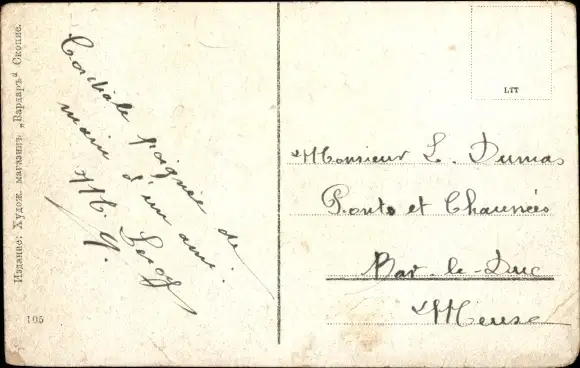 Издание: Худож. магазинъ „Вардаръ“ Скопие.
105
Cordiale poignée de
main d'un ami.
M. Leroy
LTT
Monsieur L. Dumas
Ponts et Chaussées
Bar-le-Duc
Meuse